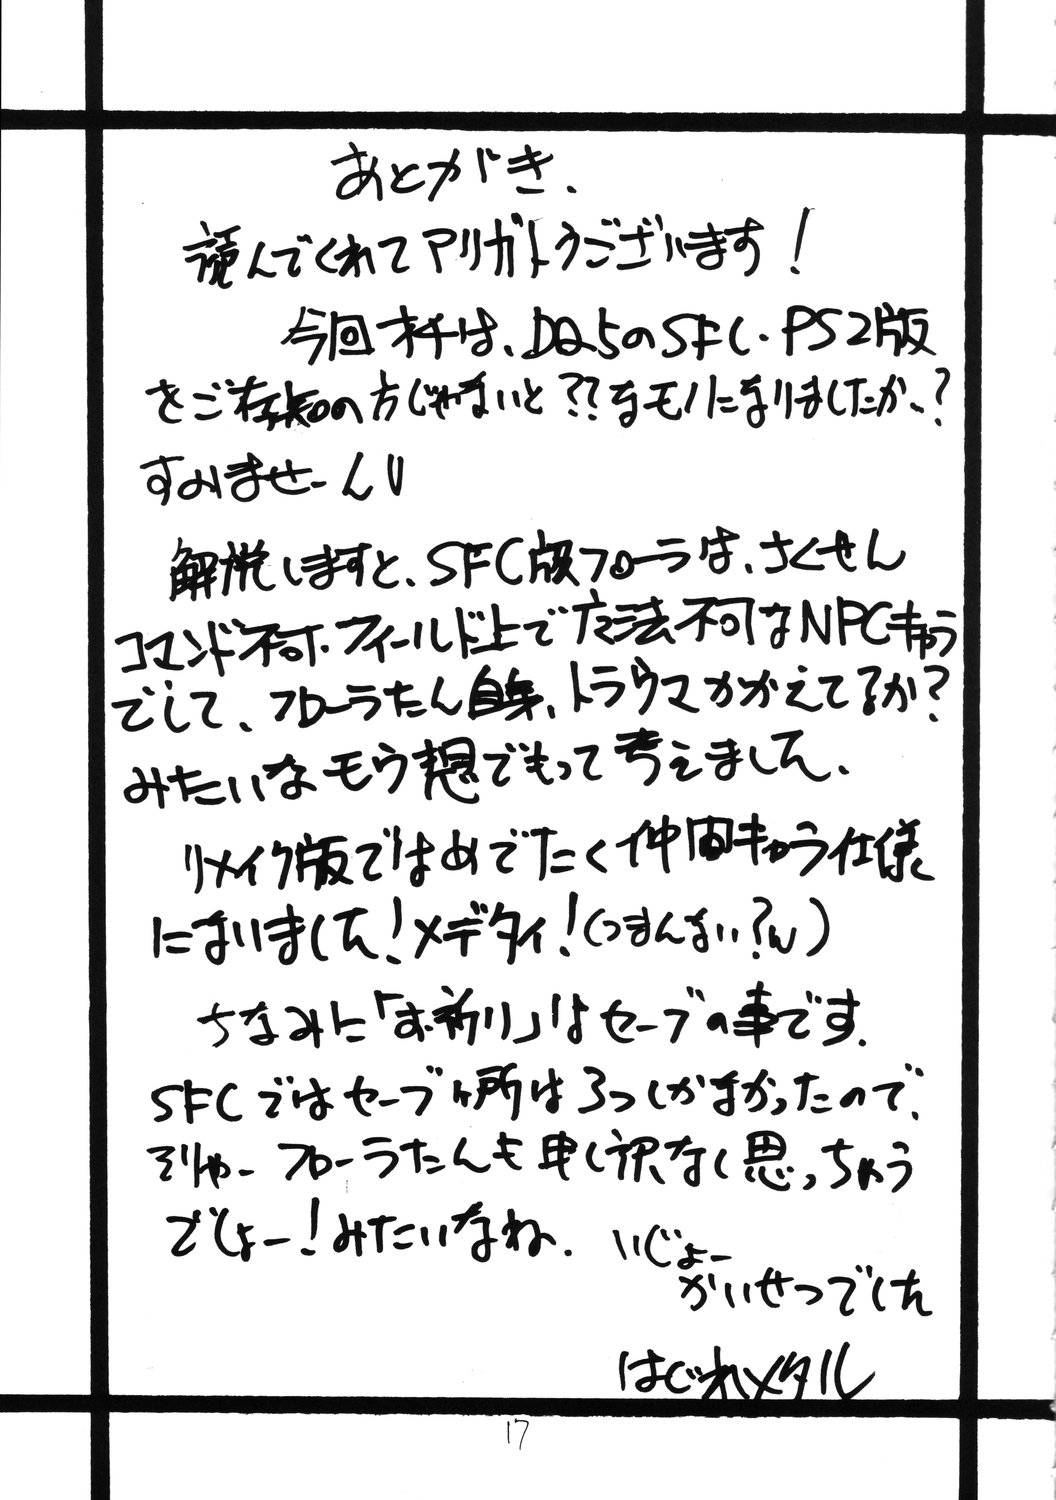 あとがき、
読んでくれてアリガトうございます！
今回オチは、DQ5のSFC・PS2版
をご存知の方じゃないと??なモノになりましたか、?
すみませーんU
解説しますと、SFC版フローラは、さくせん
コマンド不可・フィールド上で方法不可なNPCきゃら
でして、フローラたん自身、トラウマかかえてるか?
みたいなモウ想でもって考えました、
リメイク版ではめでたく仲間キャラ仕様
になりました!メデタイ!(つまんない?w)
ちなみに「お祈り」はセーブの事です.
SFCではセーブヶ所は3つしかなかったので、
そりゃーフローラたんも申し訳なく思っちゃう
でしょー!みたいなね.
いじょー
かいせつでした
はぐれメタル
17